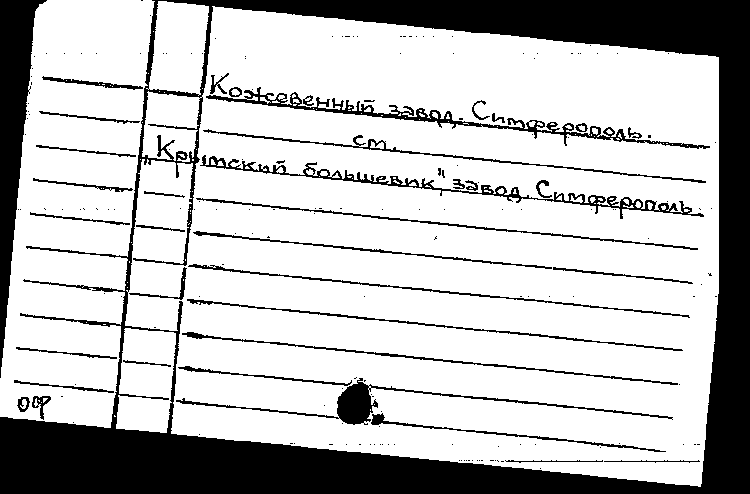 Кожевенный завод. Симферополь.
см.
„Крымский большевик", завод. Симферополь.